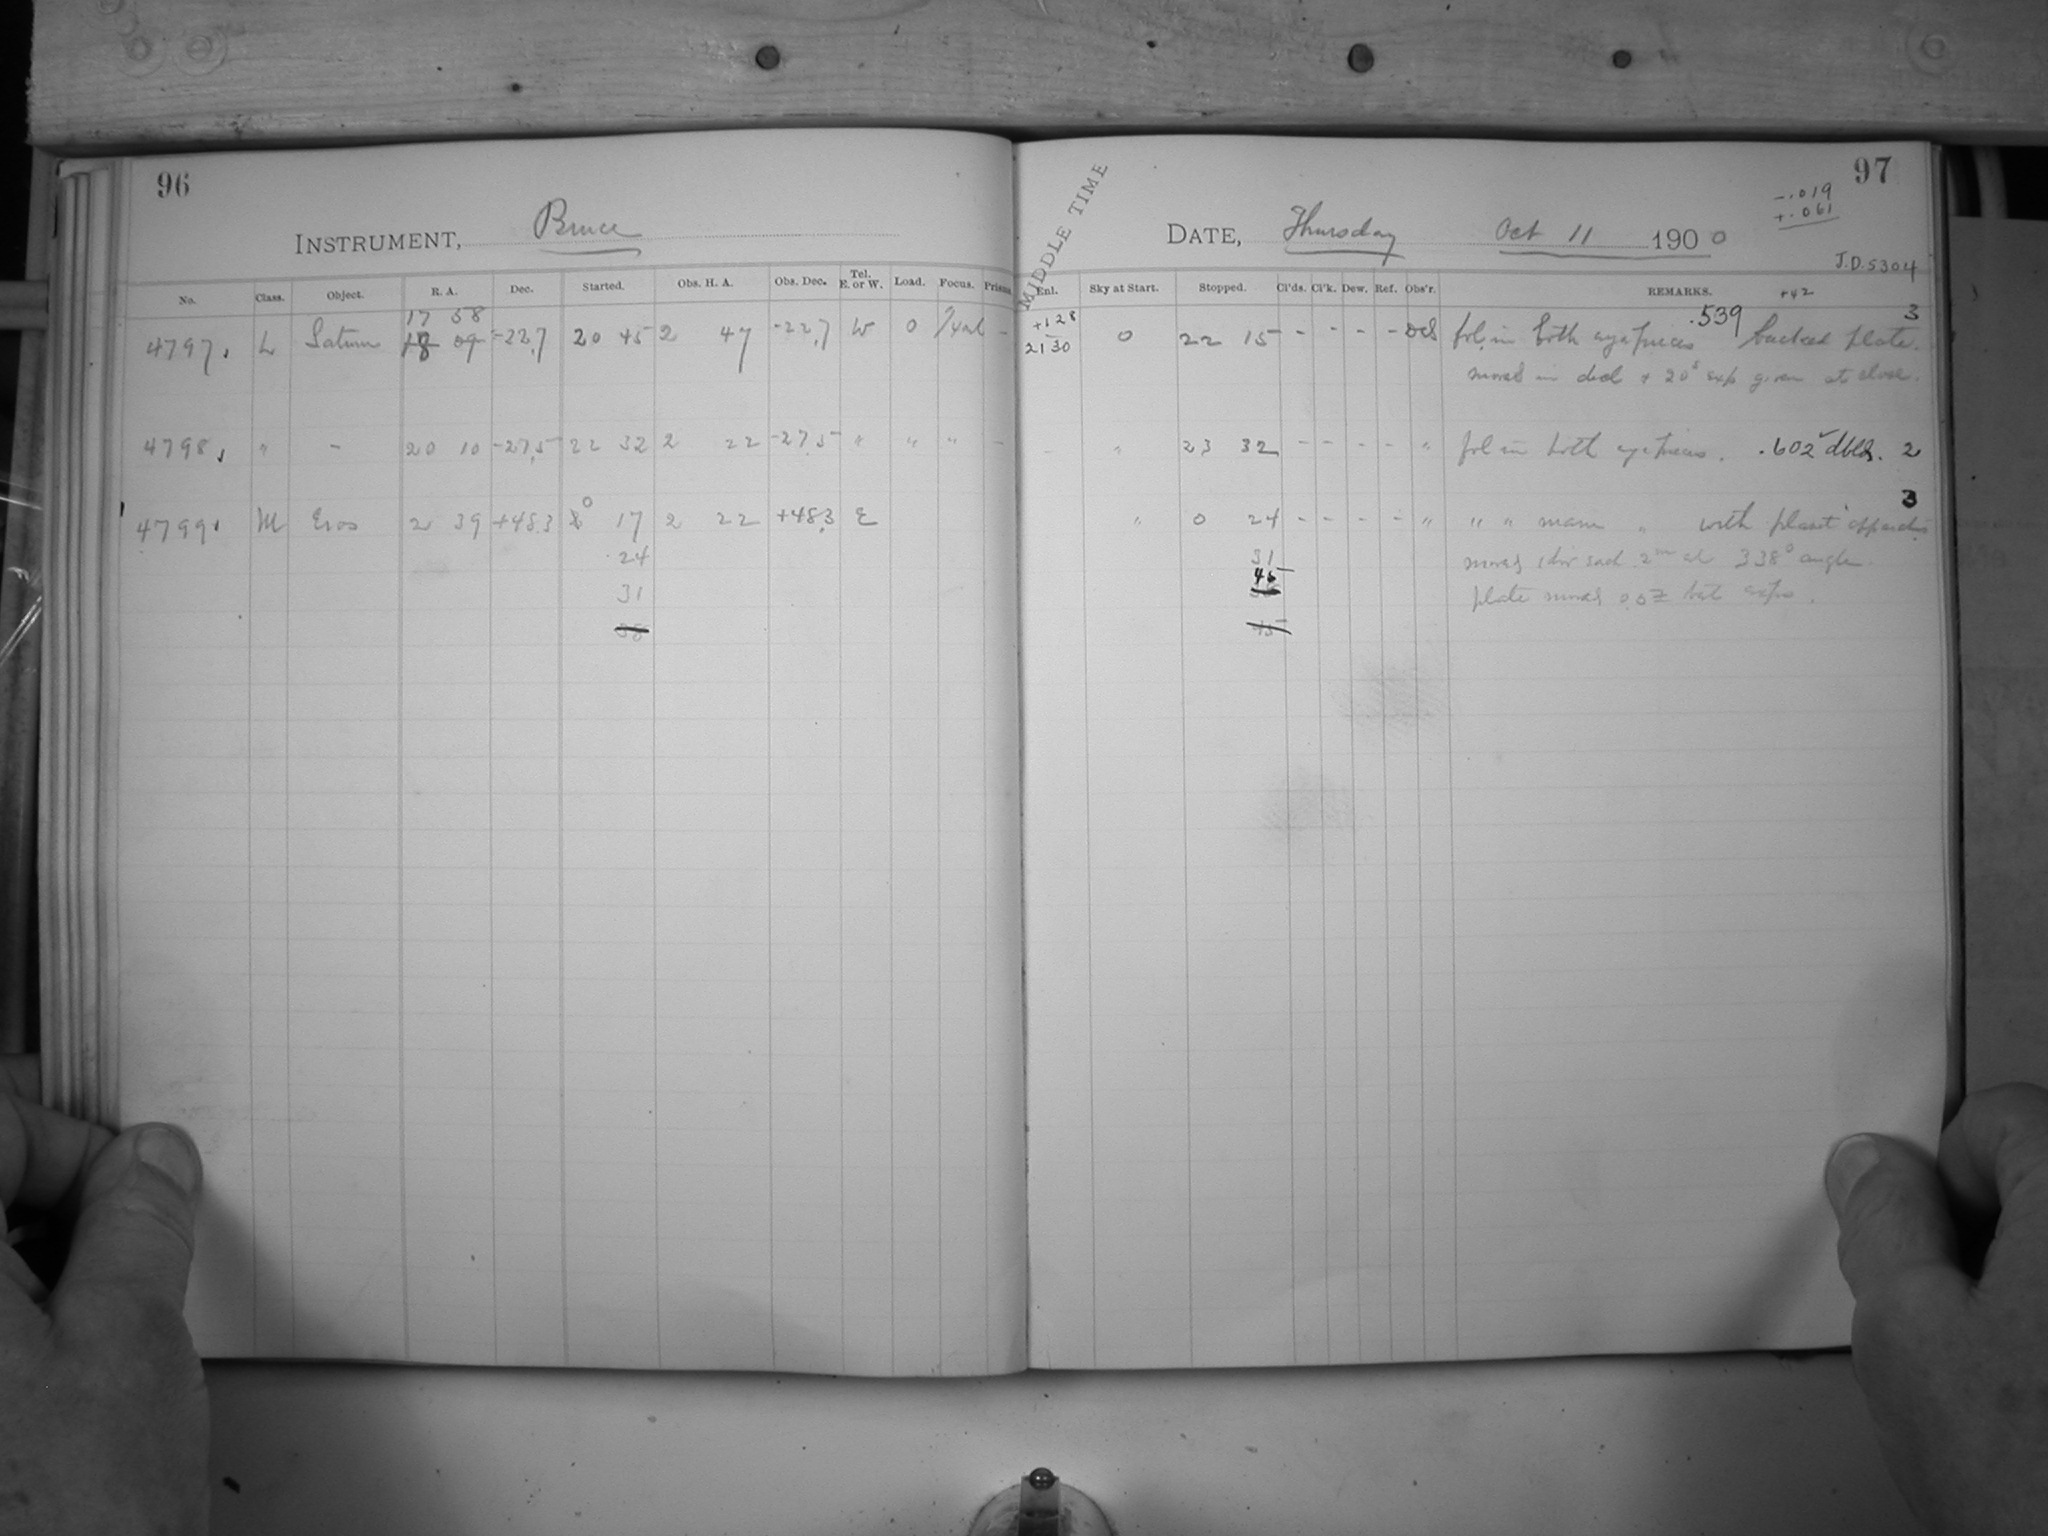 96
INSTRUMENT, Bruce
No. Class. Object. R. A. Dec. Started. Obs. H. A. Obs. Dec. Tel. E. or W. Load. Focus. Prisms
17 58
4797. L Saturn 18 09 -22.7 20 45 2 47 -22.7 W 0
4798. " - 20 10 -27.5 22 32 2 22 -27.5 " " " -
4799. M Eros 2 39 +48.3 0 17 2 22 +48.3 E
24
31
38
97
MIDDLE TIME
-.019
+.061
DATE, Thursday Oct 11 1900
J.D. 5304
Enl. Sky at Start. Stopped. Cl'ds. Cl'k. Dew. Ref. Obs'r. REMARKS. +42
+128 .539 3
2130 0 22 15 - - - - fol. in both eyepieces backed plate.
moved in decl + 20s exp given at close.
" 23 32 - - - - " fol in both eyepieces. .602 dbld. 2
3
" 0 24 - - - - " " " " with planet apparatus
31 moved 1 div each 2m at 338° angle.
45
plate moved bet exps.
45